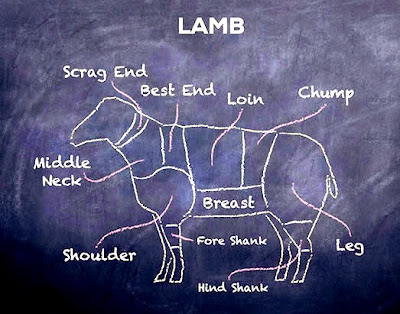 LAMB
Scrag End
Best End
Loin
Chump
Middle
Neck
Breast
Shoulder
Fore Shank
Leg
Hind Shank